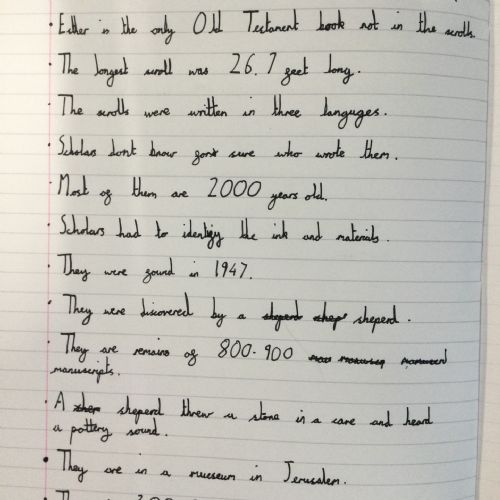 · Esther is the only Old Testament book not in the scrolls.
· The longest scroll was 26.7 feet long.
· The scrolls were written in three languges.
· Scholars dont know for sure who wrote them.
· Most of them are 2000 years old.
· Scholars had to identify the ink and materials.
· They were found in 1947.
· They were discovered by a sheperd shep sheperd.
· They are remains of 800-900
manuscripts.
· A sheperd threw a stone in a cave and heard
a pottery sound.
· They are in a museum in Jerusalem.